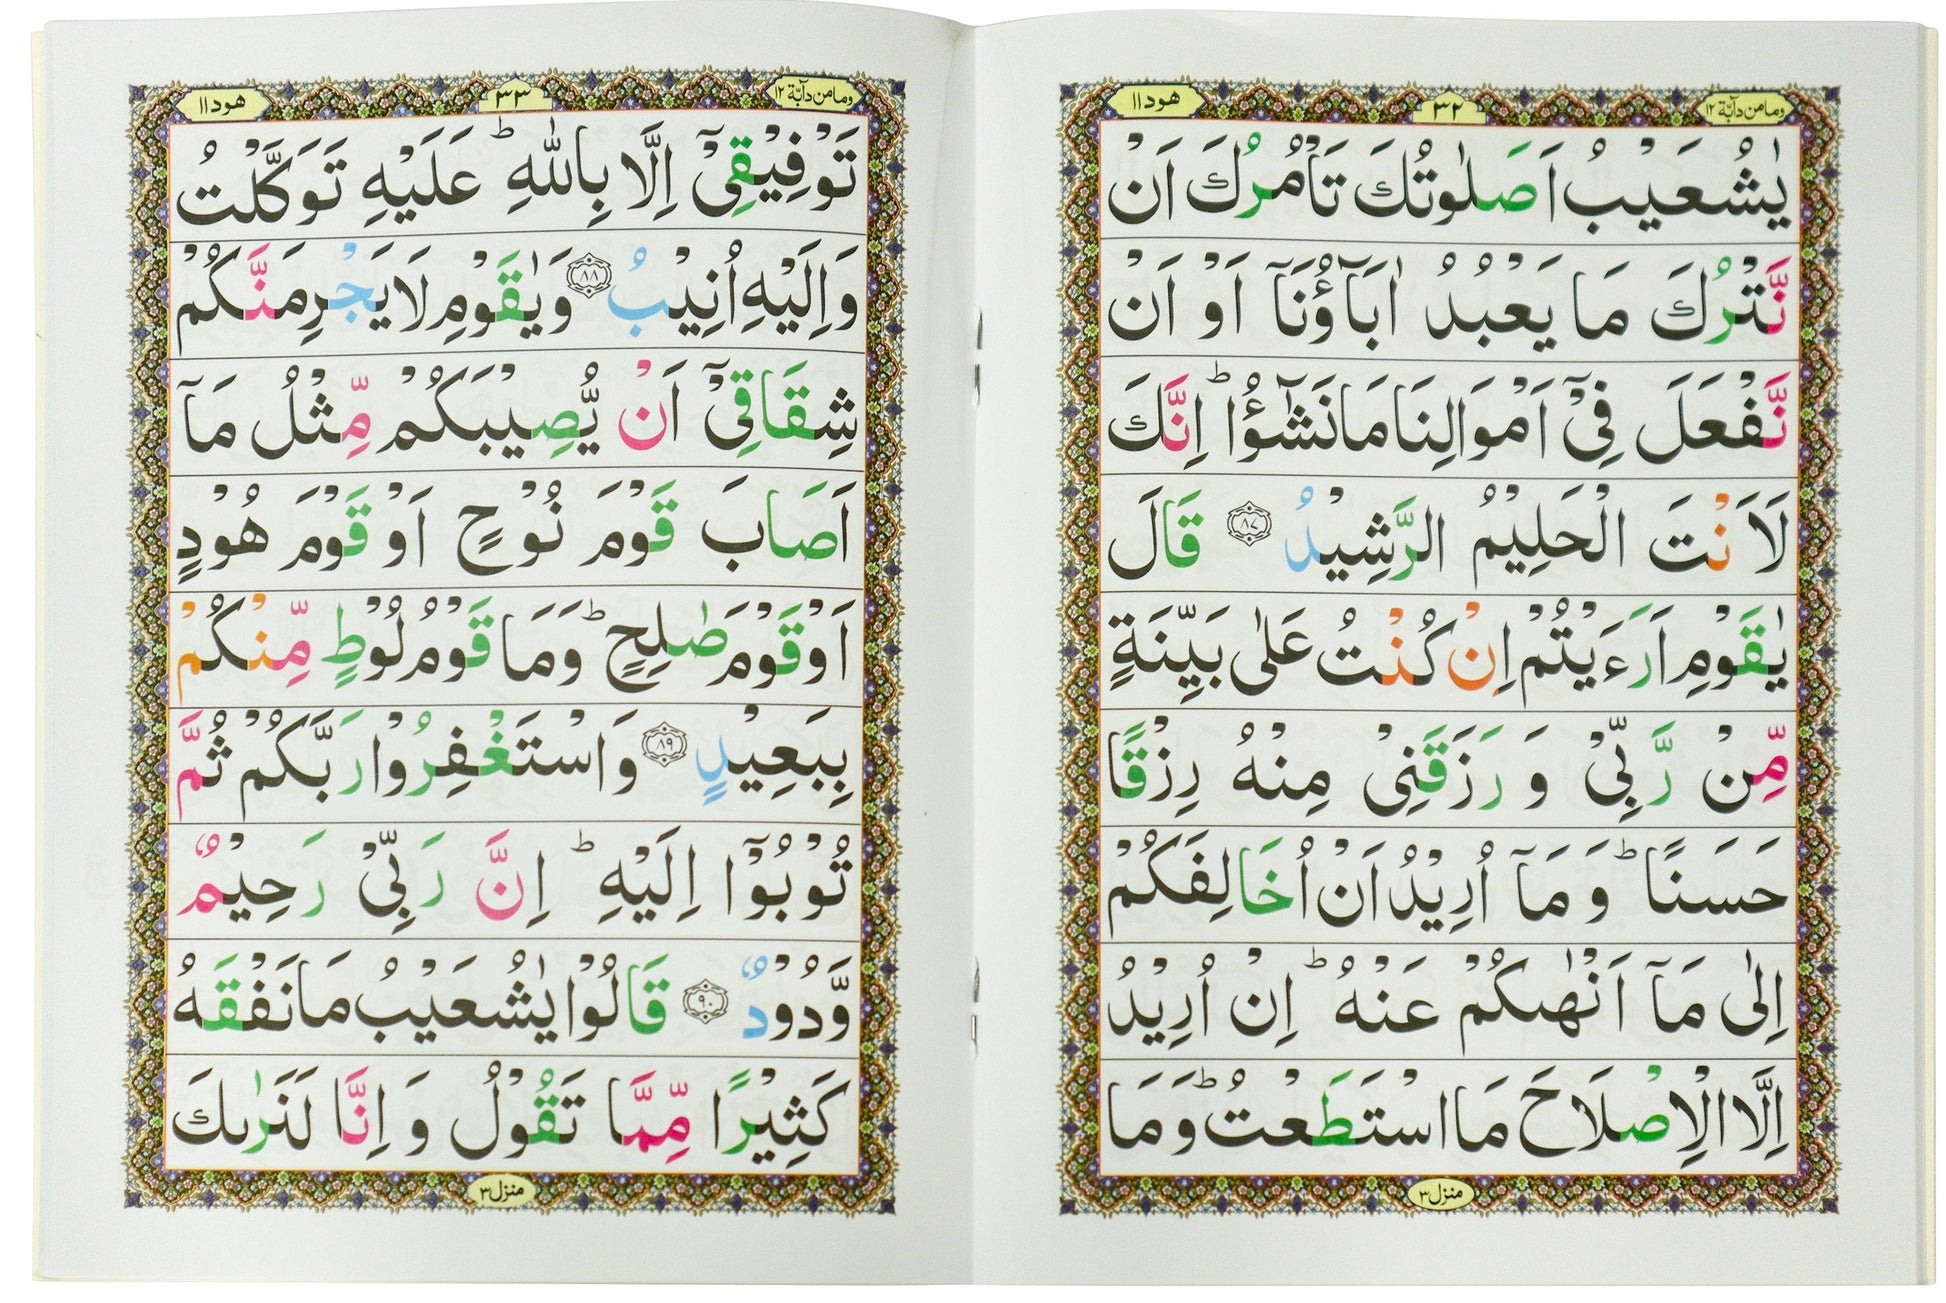 وما من دآبة ١٢
٣٢
هود ١١
يٰشُعَيْبُ اَصَلٰوتُكَ تَاْمُرُكَ اَنْ
نَّتْرُكَ مَا يَعْبُدُ اٰبَآؤُنَآ اَوْ اَنْ
نَّفْعَلَ فِيْۤ اَمْوَالِنَا مَا نَشٰٓؤُا ؕ اِنَّكَ
لَاَنْتَ الْحَلِيْمُ الرَّشِيْدُ ﴿٨٧﴾ قَالَ
يٰقَوْمِ اَرَءَيْتُمْ اِنْ كُنْتُ عَلٰى بَيِّنَةٍ
مِّنْ رَّبِّيْ وَ رَزَقَنِيْ مِنْهُ رِزْقًا
حَسَنًا ؕ وَ مَآ اُرِيْدُ اَنْ اُخَالِفَكُمْ
اِلٰى مَآ اَنْهٰىكُمْ عَنْهُ ؕ اِنْ اُرِيْدُ
اِلَّا الْاِصْلَاحَ مَا اسْتَطَعْتُ ؕ وَ مَا
منزل ٣
وما من دآبة ١٢
٣٣
هود ١١
تَوْفِيْقِيْۤ اِلَّا بِاللّٰهِ ؕ عَلَيْهِ تَوَكَّلْتُ
وَ اِلَيْهِ اُنِيْبُ ﴿٨٨﴾ وَ يٰقَوْمِ لَا يَجْرِمَنَّكُمْ
شِقَاقِيْۤ اَنْ يُّصِيْبَكُمْ مِّثْلُ مَآ
اَصَابَ قَوْمَ نُوْحٍ اَوْ قَوْمَ هُوْدٍ
اَوْ قَوْمَ صٰلِحٍ ؕ وَ مَا قَوْمُ لُوْطٍ مِّنْكُمْ
بِبَعِيْدٍ ﴿٨٩﴾ وَ اسْتَغْفِرُوْا رَبَّكُمْ ثُمَّ
تُوْبُوْۤا اِلَيْهِ ؕ اِنَّ رَبِّيْ رَحِيْمٌ
وَّدُوْدٌ ﴿٩٠﴾ قَالُوْا يٰشُعَيْبُ مَا نَفْقَهُ
كَثِيْرًا مِّمَّا تَقُوْلُ وَ اِنَّا لَنَرٰىكَ
منزل ٣